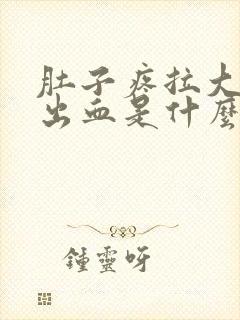 肚子疼拉大
出血是什麼
鍾靈呀